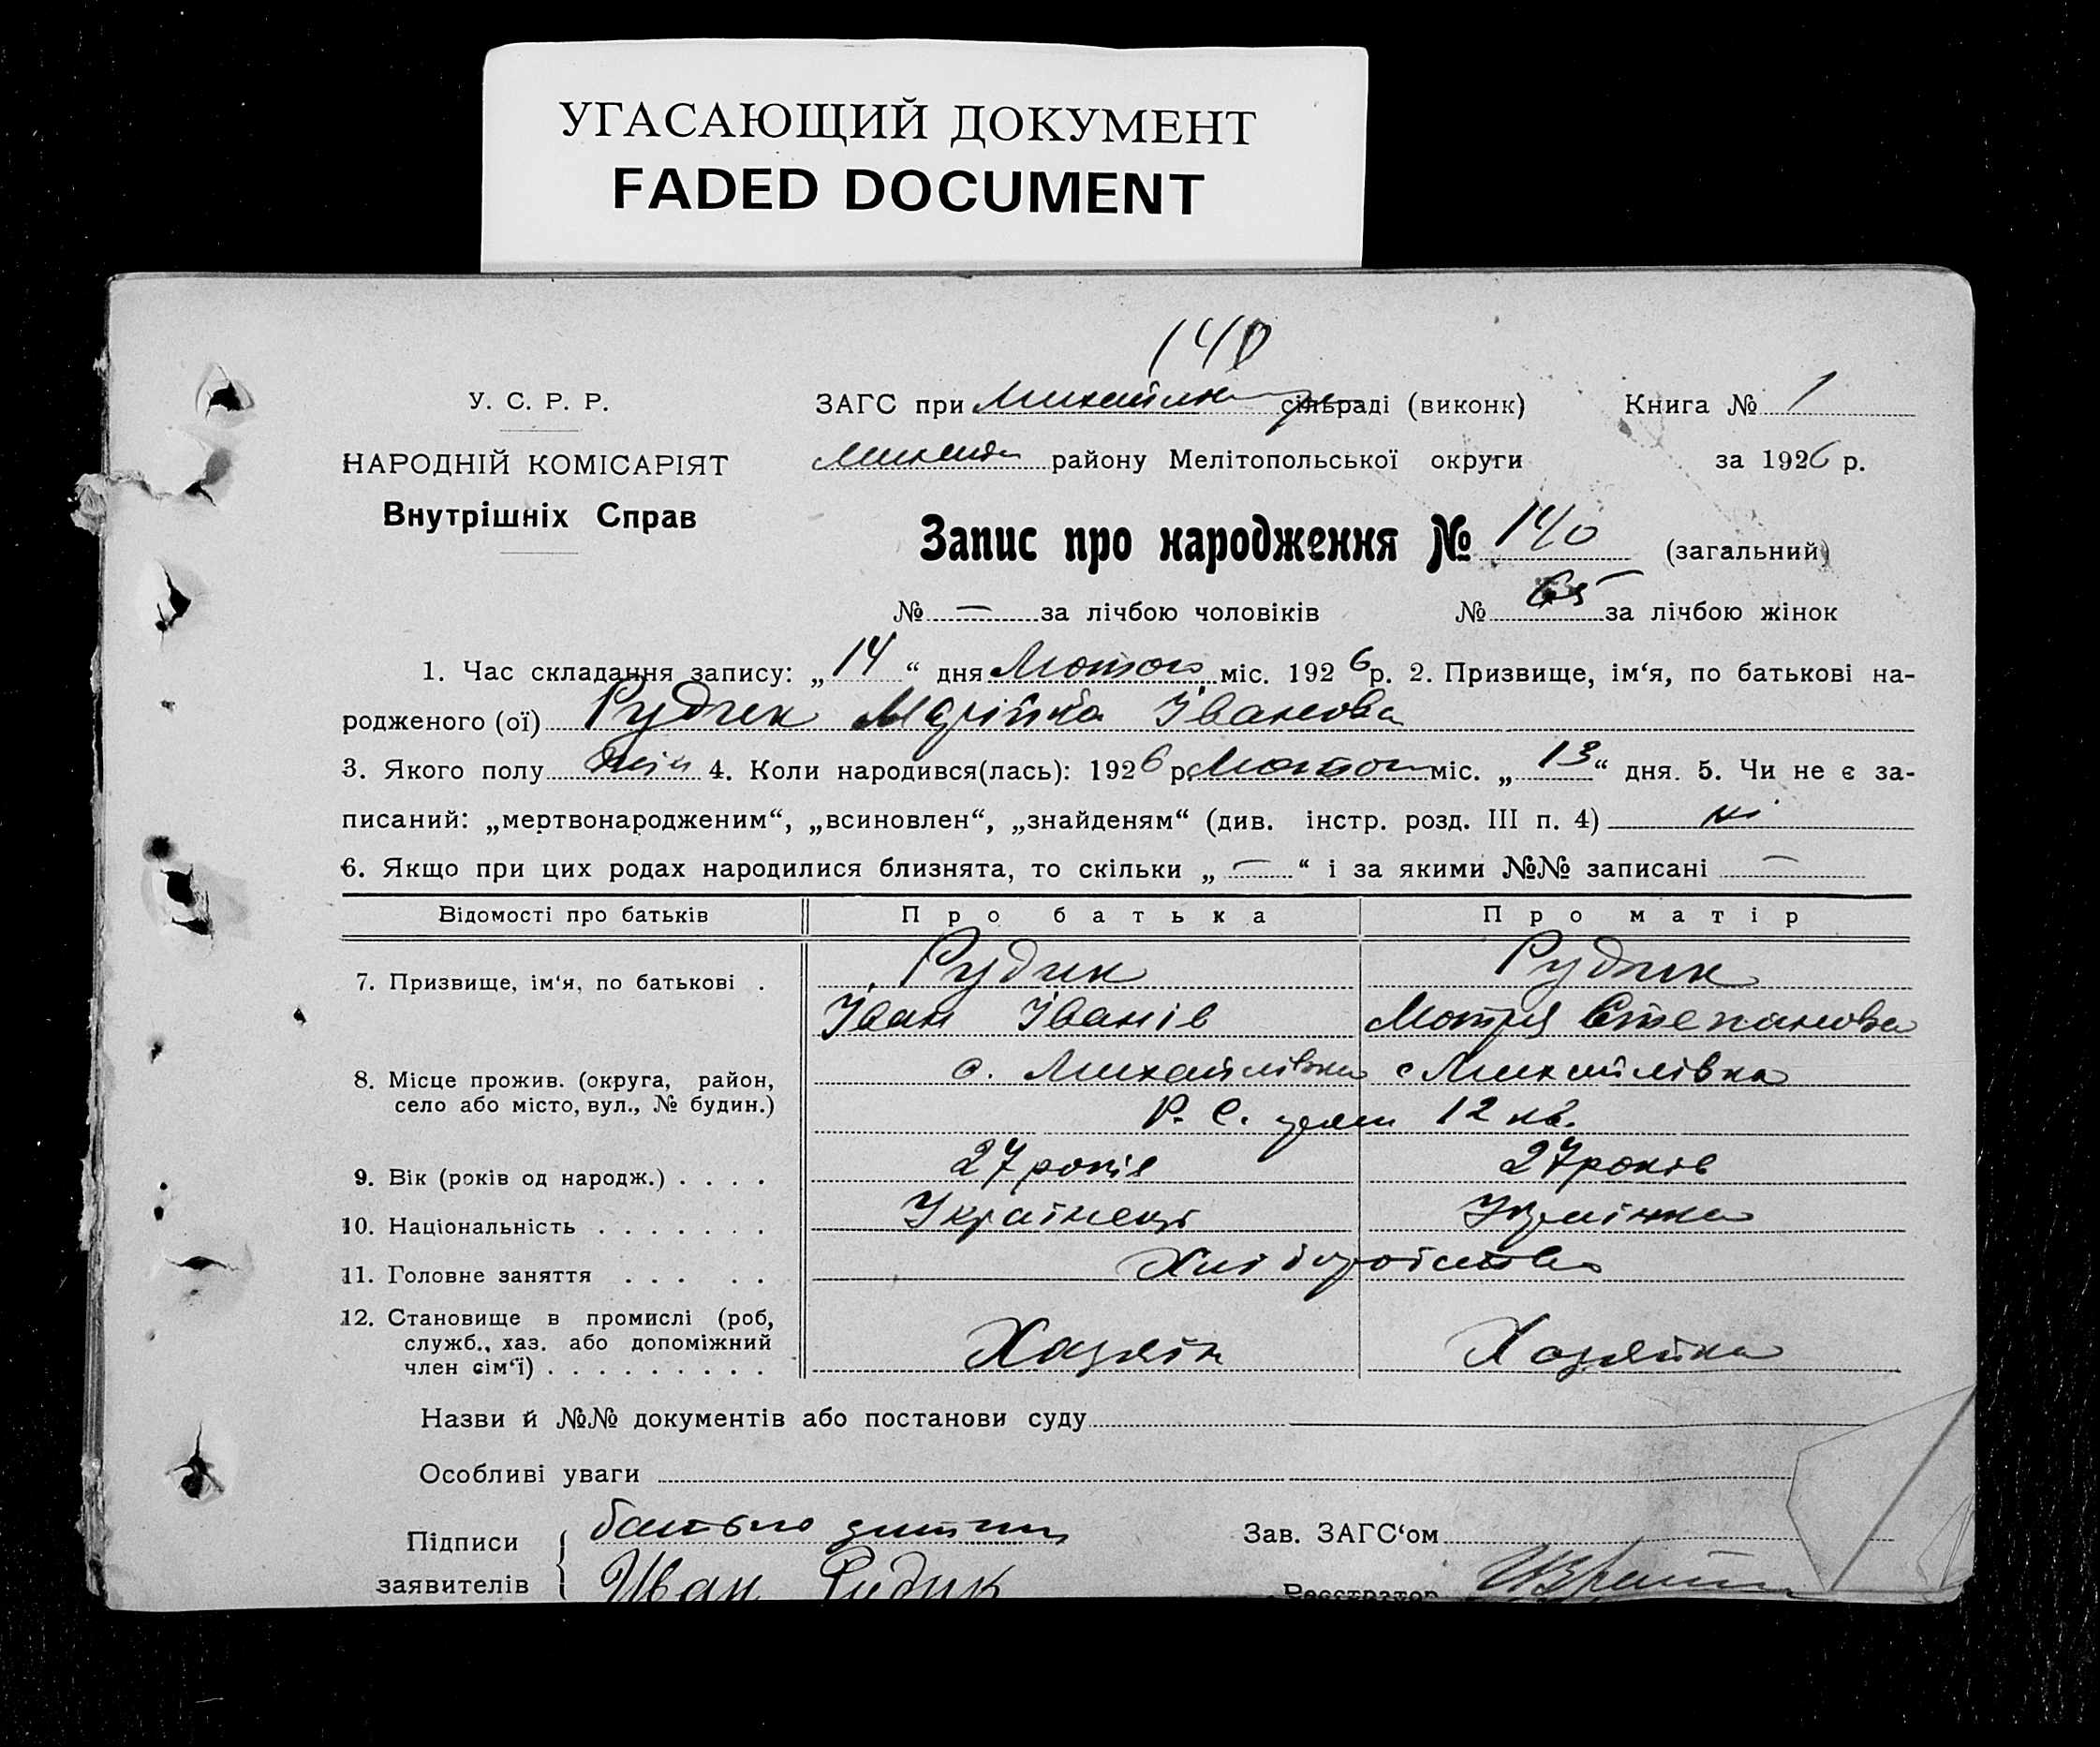 УГАСАЮЩИЙ ДОКУМЕНТ
FADED DOCUMENT
140
У. С. Р. Р.
НАРОДНІЙ КОМІСАРІЯТ
Внутрішніх Справ
ЗАГС при сільраді (виконк) Книга № 1
району Мелітопольської округи за 1926 р.
Запис про народження № 140 (загальний)
№ — за лічбою чоловіків № 65 за лічбою жінок
1. Час складання запису: „14“ дня Лютого міс. 1926 р. 2. Призвище, ім‘я, по батькові на-
родженого (ої) Рудик Марійка Іванова
3. Якого полу жін 4. Коли народився(лась): 1926 р. Лютого міс. „13“ дня. 5. Чи не є за-
писаний: „мертвонародженим“, „всиновлен“, „знайденям“ (див. інстр. розд. III п. 4) ні
6. Якщо при цих родах народилися близнята, то скільки „—“ і за якими №№ записані —
Відомості про батьків Про батька Про матір
7. Призвище, ім‘я, по батькові . Рудик Рудик
Іван Іванів Мотря Степанова
8. Місце прожив. (округа, район, с. Михайлівка с Михайлівка
село або місто, вул., № будин.) Р. С. 12 кв.
9. Вік (років од народж.) . . . . 27 років 27 років
10. Національність . . . . . . . Українець Українка
11. Головне заняття . . . . . Хліборобство
12. Становище в промислі (роб,
служб., хаз. або допоміжний
член сім‘ї) . . . . . . . . . Хазяїн Хозяйка
Назви й №№ документів або постанови суду
Особливі уваги
Підписи батько дитини Зав. ЗАГС‘ом
заявителів Иван Рудик Реєстратор